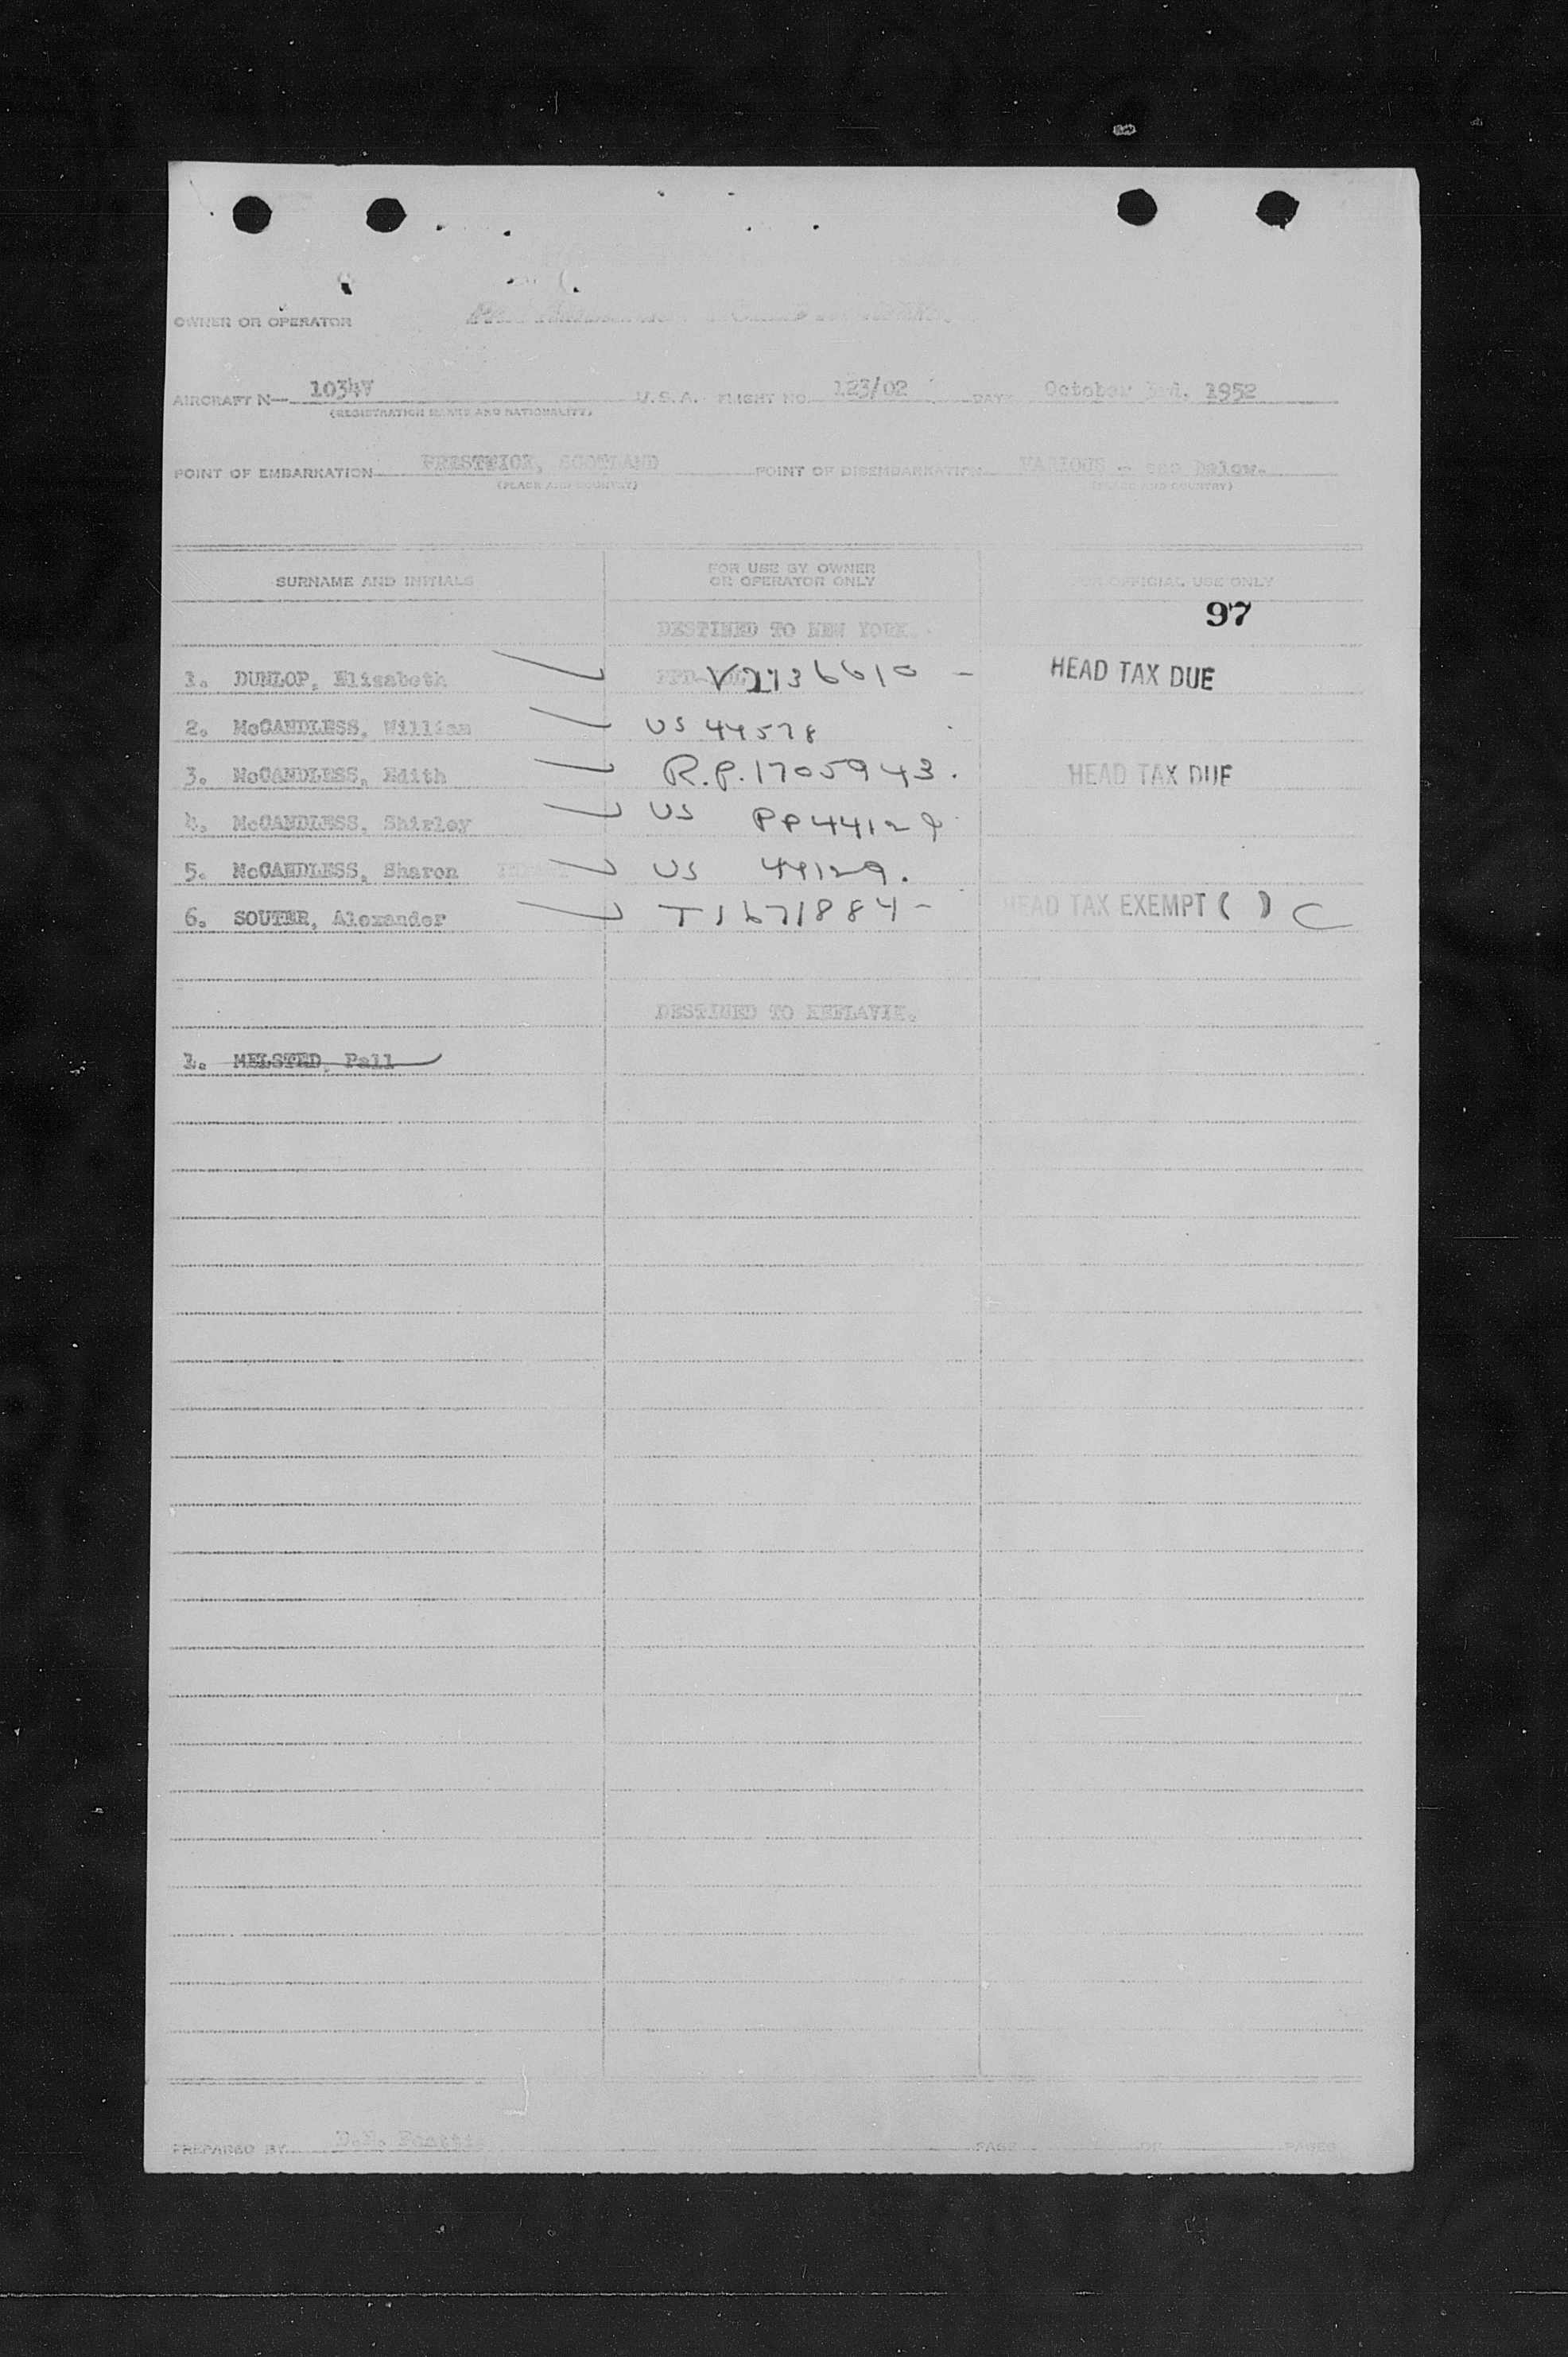 OWNER OR OPERATOR
AIRCRAFT N— 1034V U.S.A. FLIGHT NO. 123/02 DATE October 3rd, 1952
(REGISTRATION MARKS AND NATIONALITY)
POINT OF EMBARKATION PRESTWICK, SCOTLAND POINT OF DISEMBARKATION VARIOUS - see below.
(PLACE AND COUNTRY) (PLACE AND COUNTRY)
SURNAME AND INITIALS FOR USE BY OWNER OR OPERATOR ONLY FOR OFFICIAL USE ONLY
97
DESTINED TO NEW YORK.
1. DUNLOP, Elizabeth HEAD TAX DUE
2. McCANDLESS, William US 44578
3. McCANDLESS, Edith R.P. 1705943. HEAD TAX DUE
4. McCANDLESS, Shirley US PP44129
5. McCANDLESS, Sharon US 44129.
6. SOUTER, Alexander T1671884- HEAD TAX EXEMPT ( ) C
DESTINED TO KEFLAVIK.
1. MELSTED, Pall
PREPARED BY PAGE OF PAGES